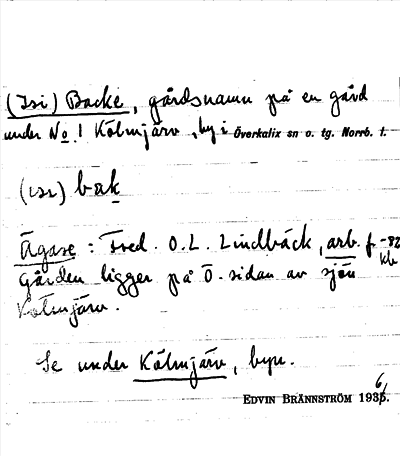 (Isi) Backe, gårdsnamn på en gård
under No 1 Kölmjärv, by i Överkalix sn o. tg. Norrb. l.
(ısı) bak
Ägare: Fred. O. L. Lindbäck, arb. f. -82
Gården ligger på Ö. sidan av sjön
Kölmjärv.
Se under Kölmjärv, byn.
EDVIN BRÄNNSTRÖM 1936.